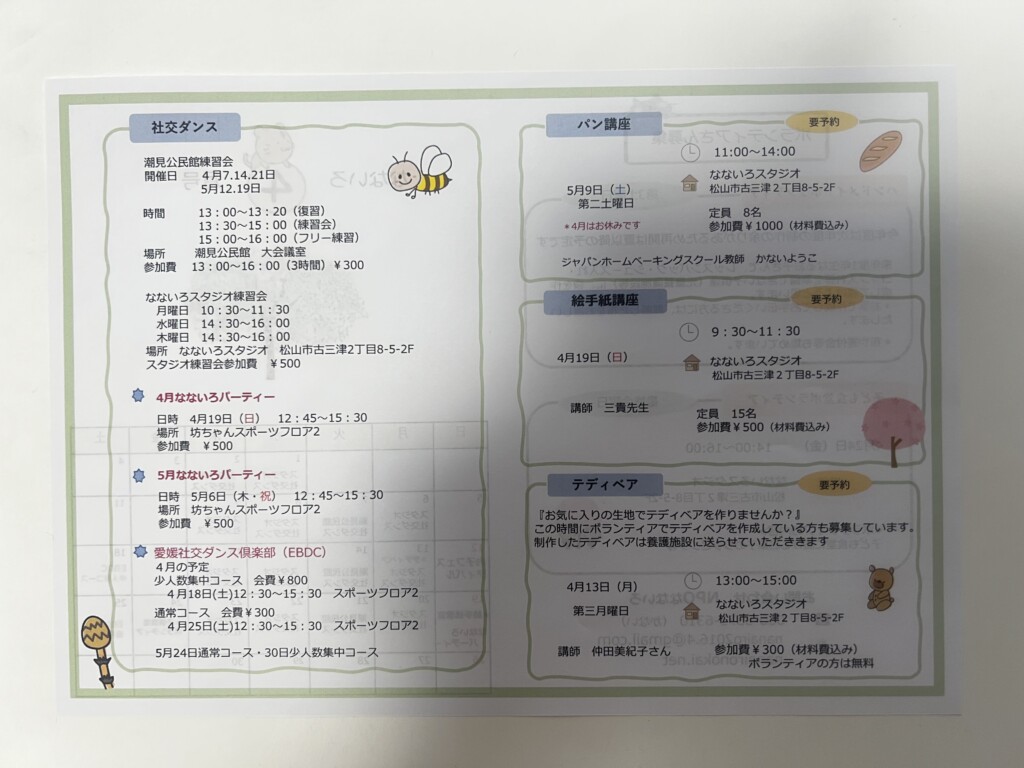 社交ダンス
潮見公民館練習会
開催日 4月7.14.21日
5月12.19日
時間 13：00～13：20（復習）
13：30～15：00（練習会）
15：00～16：00（フリー練習）
場所 潮見公民館 大会議室
参加費 13：00～16：00（3時間）￥300
なないろスタジオ練習会
月曜日 10：30～11：30
水曜日 14：30～16：00
木曜日 14：30～16：00
場所 なないろスタジオ 松山市古三津2丁目8-5-2F
スタジオ練習会参加費 ￥500
4月なないろパーティー
日時 4月19日（日） 12：45～15：30
場所 坊ちゃんスポーツフロア2
参加費 ￥500
5月なないろパーティー
日時 5月6日（木・祝） 12：45～15：30
場所 坊ちゃんスポーツフロア2
参加費 ￥500
愛媛社交ダンス倶楽部（EBDC）
4月の予定
少人数集中コース 会費￥800
4月18日(土)12：30～15：30 スポーツフロア2
通常コース 会費￥300
4月25日(土)12：30～15：30 スポーツフロア2
5月24日通常コース・30日少人数集中コース
パン講座
要予約
11:00～14:00
5月9日（土）
第二土曜日
なないろスタジオ
松山市古三津２丁目8-5-2F
＊4月はお休みです
定員 8名
参加費￥1000（材料費込み）
ジャパンホームベーキングスクール教師 かないようこ
絵手紙講座
要予約
9：30～11：30
4月19日（日）
なないろスタジオ
松山市古三津２丁目8-5-2F
講師 三貴先生
定員 15名
参加費￥500（材料費込み）
テディベア
要予約
『お気に入りの生地でテディベアを作りませんか？』
この時間にボランティアでテディベアを作成している方も募集しています。
制作したテディベアは養護施設に送らせていただききます
4月13日（月）
13:00～15:00
第三月曜日
なないろスタジオ
松山市古三津２丁目8-5-2F
講師 仲田美紀子さん
参加費￥300（材料費込み）
ボランティアの方は無料